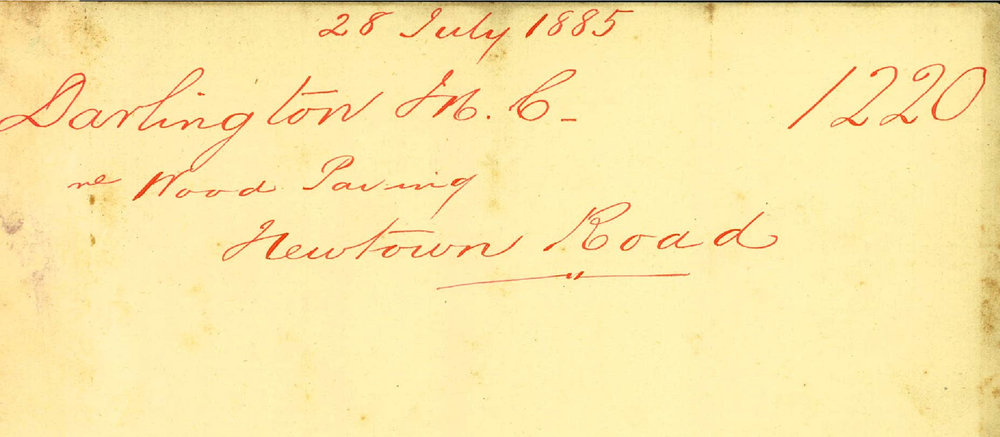 28 July 1885
Darlington M. C- 1220
re Wood Paving
Newtown Road